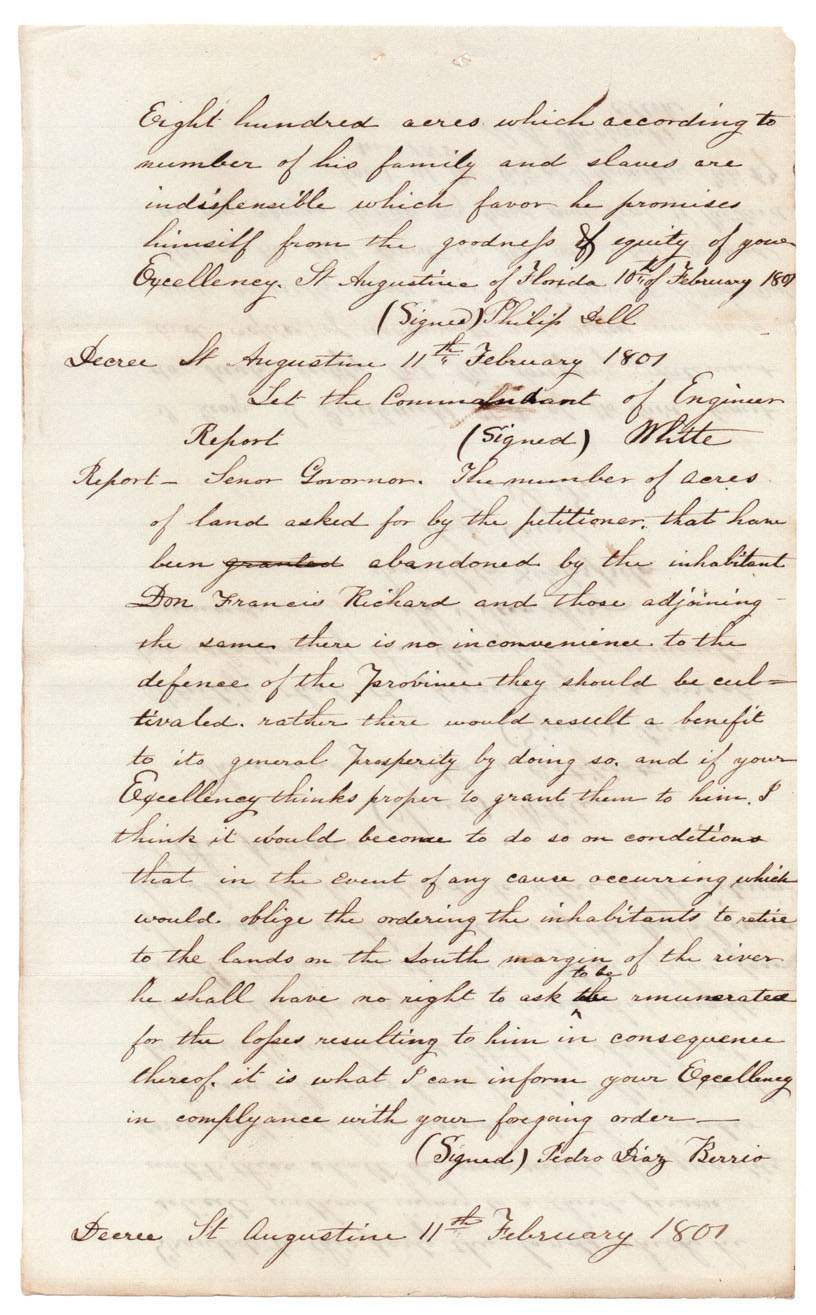 Eight hundred acres which according to
number of his family and slaves are
indispensible which favor he promises
himself from the goodness & equity of your
Excellency. St Augustine of Florida 10th of February 1801
(Signed) Philip Dell
Decree St Augustine 11th February 1801
Let the Commandant of Engineer
Report (Signed) White
Report - Senor Govornor. The number of acres
of land asked for by the petitioner, that have
been granted abandoned by the inhabitant
Don Francis Richard and those adjoining
the same there is no inconvenience to the
defence of the Province they should be cul=
tivated. rather there would result a benefit
to its general Prosperity by doing so. and if your
Excellency thinks proper to grant them to him. I
think it would become to do so on conditions
that in the event of any cause occurring which
would oblige the ordering the inhabitants to retire
to the lands on the South margin of the river
he shall have no right to ask to be rmunerated
for the losses resulting to him in consequence
thereof. it is what I can inform your Excellency
in complyance with your foregoing order —
(Signed) Pedro Diaz Berrio
Decree St Augustine 11th February 1801